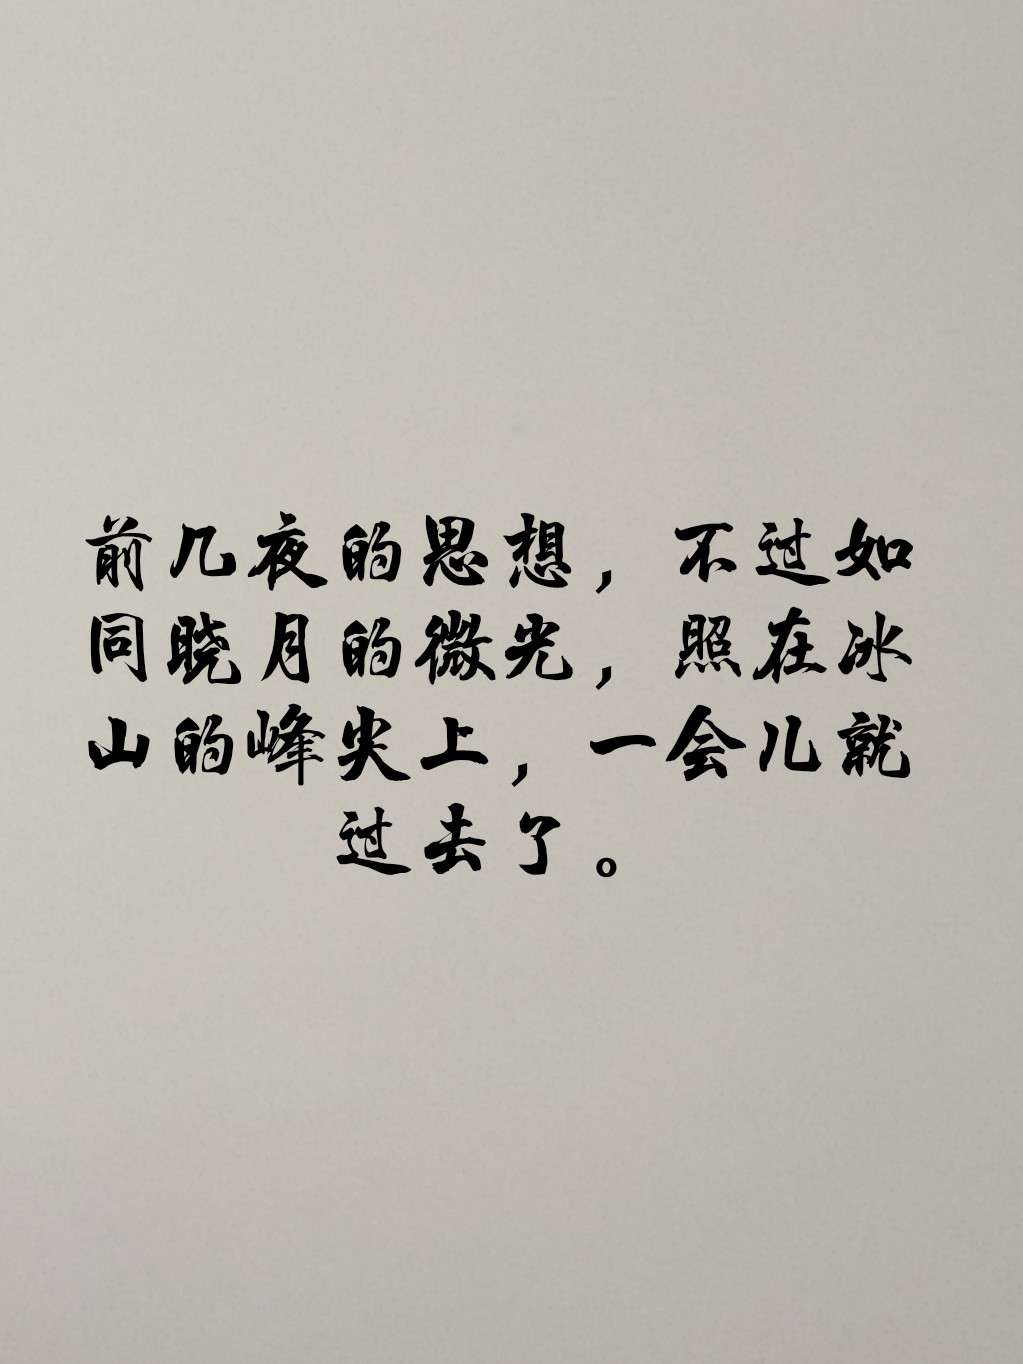 前几夜的思想，不过如
同晓月的微光，照在冰
山的峰尖上，一会儿就
过去了。